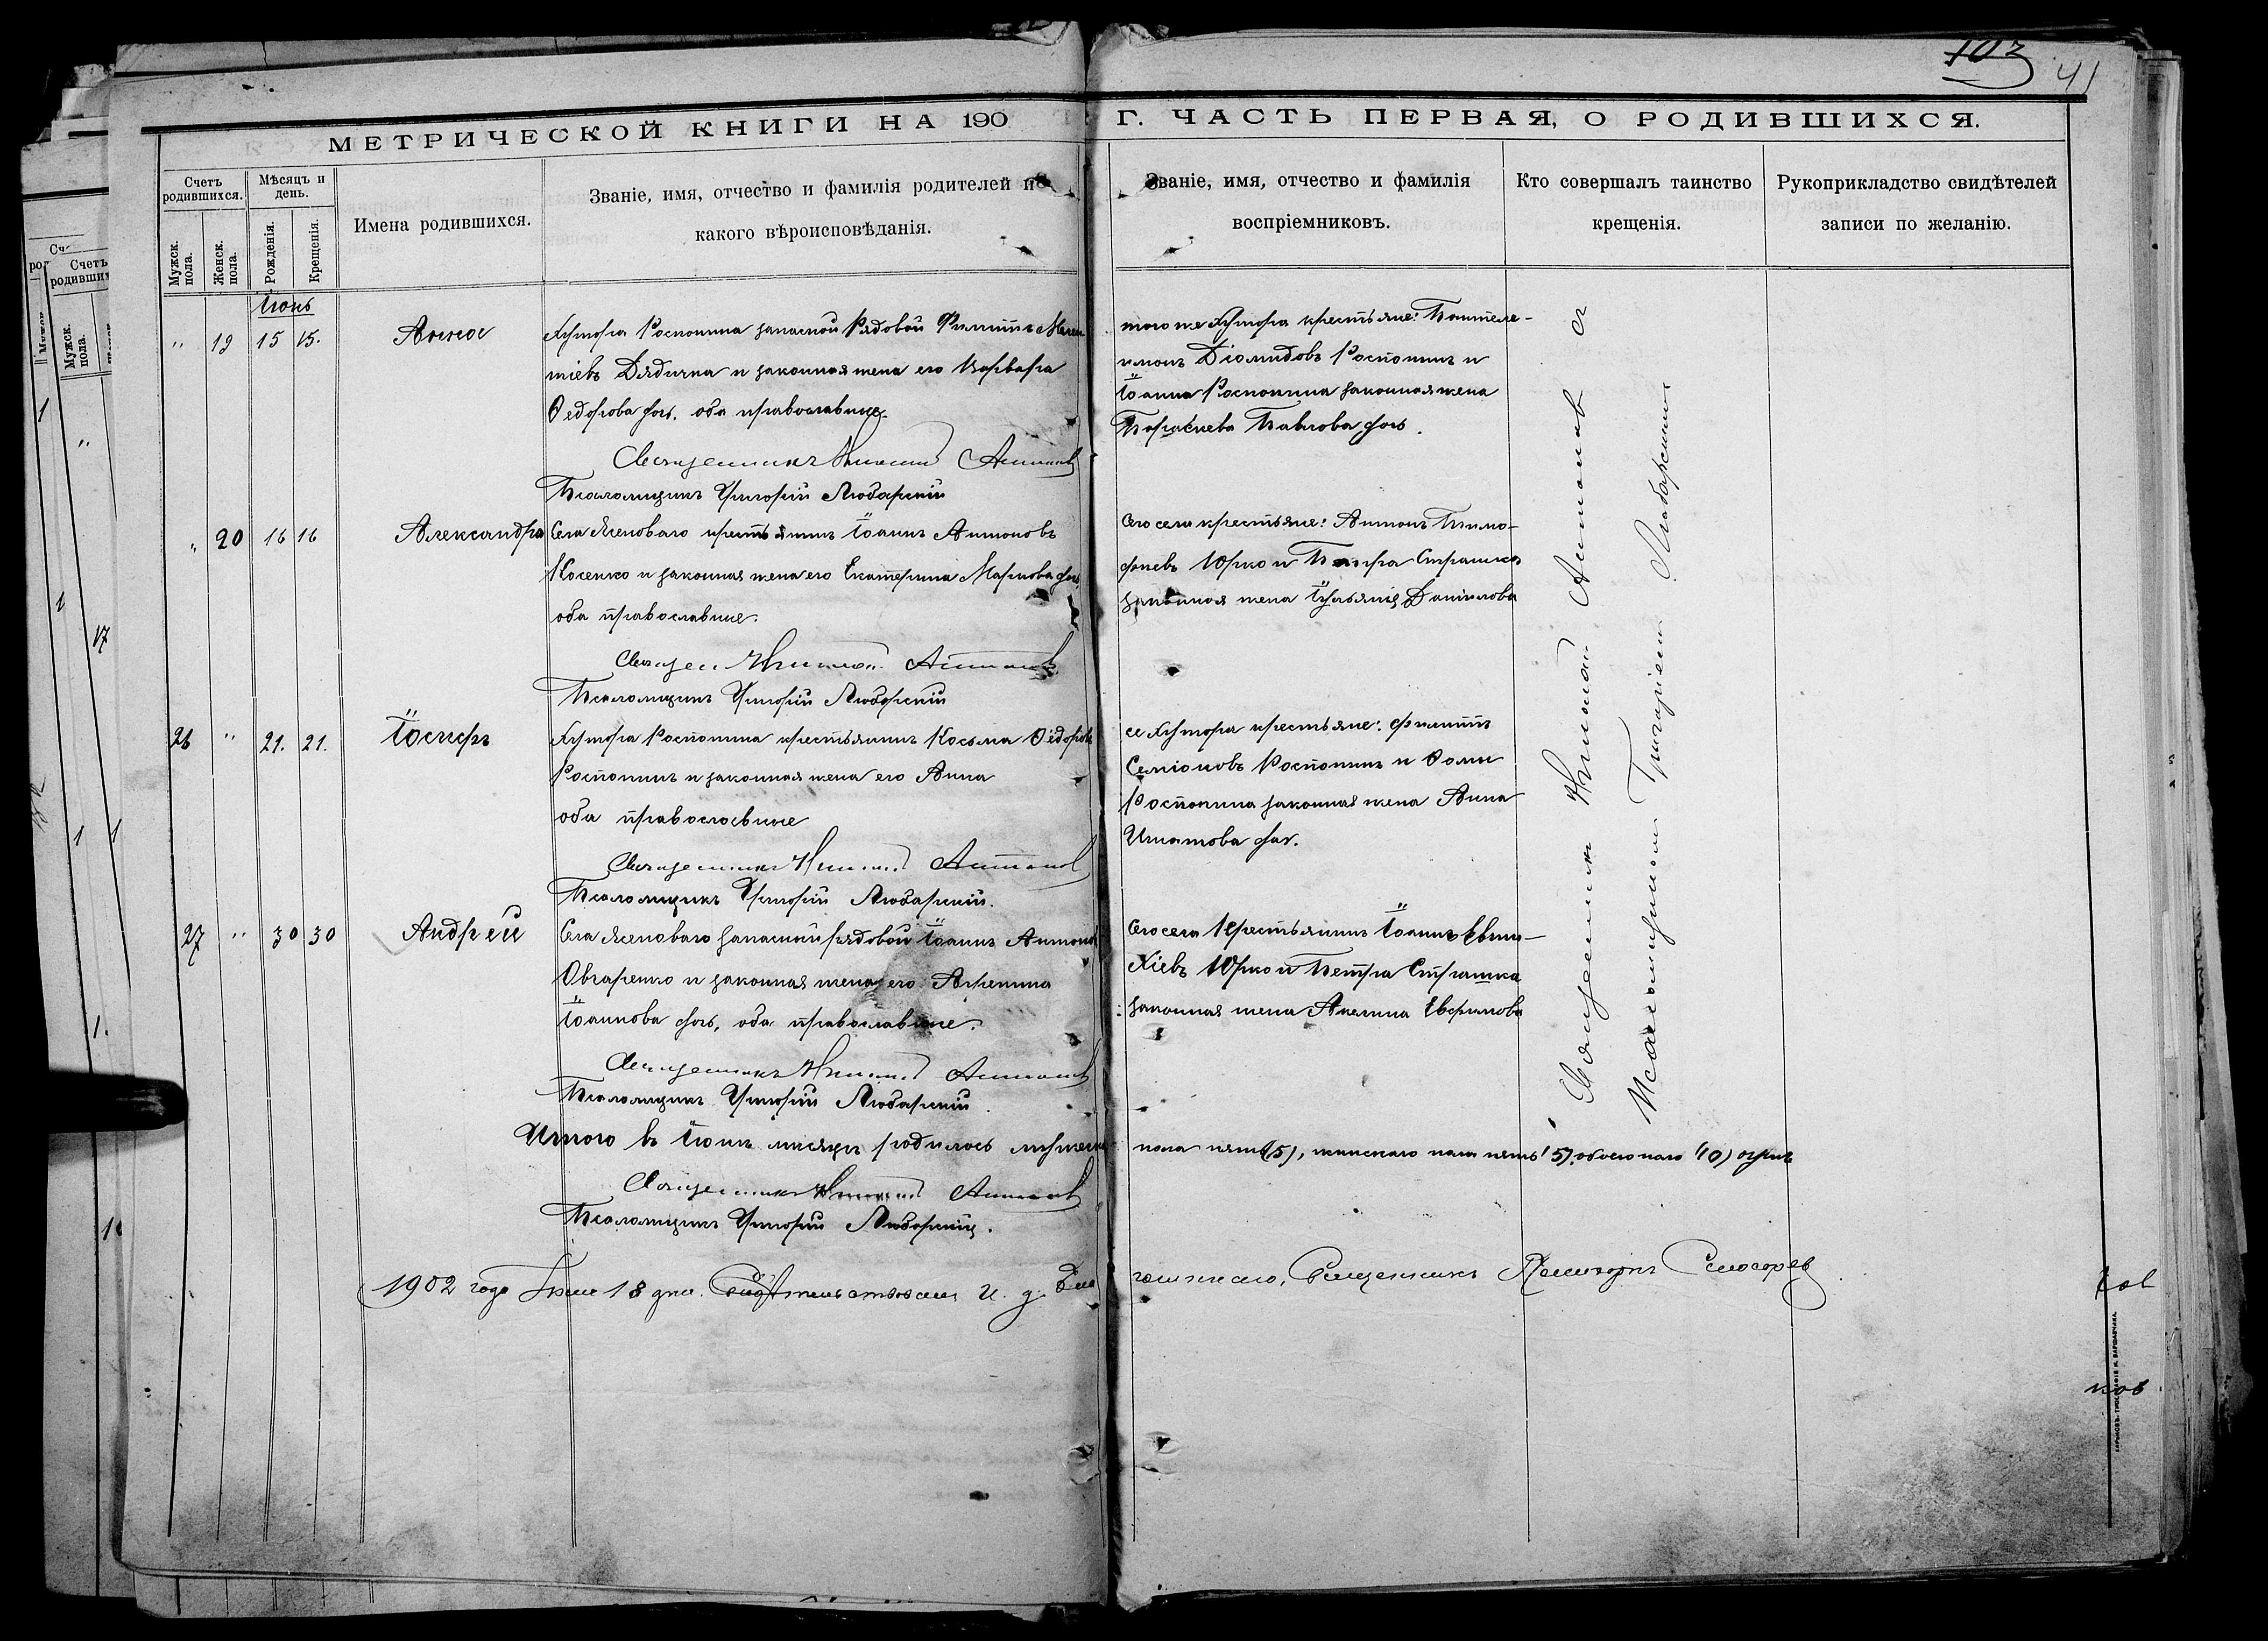 103
41
МЕТРИЧЕСКОЙ КНИГИ НА 190 Г. ЧАСТЬ ПЕРВАЯ, О РОДИВШИХСЯ.
Счетъ родившихся.
Мужск. пола.
Женск. пола.
Мѣсяцъ и день.
Рожденія.
Крещенія.
Имена родившихся.
Званіе, имя, отчество и фамилія родителей и
какого вѣроисповѣданія.
Званіе, имя, отчество и фамилія
воспріемниковъ.
Кто совершалъ таинство
крещенія.
Рукоприкладство свидѣтелей
записи по желанію.
Іюнь
" 19 15 15. Анна
Хутора Роспопина запасной рядовой Филиппъ
тіевъ Дядичка и законная жена его Варвара
Ѳедорова дочь, оба православные.
Священникъ Николай Антонов
Псаломщикъ Григорій Любарскій
того же хутора крестьяне: Пантеле-
имонъ Діомидовъ Роспопинъ и
Іоанна Роспопина законная жена
Павлова дочь.
" 20 16 16 Александра
Села Ясеноваго крестьянинъ Іоаннъ Антоновъ
Косенко и законная жена его Екатерина Маркова
оба православные.
Священ Николай Антонов
Псаломщикъ Григорій Любарскій
Сего села крестьяне: Антонъ Тимо-
феевъ Юрко и Страшка
законная жена Данилова
26 " 21. 21. Іосифъ
Хутора Роспопина крестьянинъ Косьма Ѳедоровъ
Роспопинъ и законная жена его Анна
оба православные
Священникъ Николай Антонов
Псаломщикъ Григорій Любарскій.
се хутора крестьяне: Филиппъ
Семіоновъ Роспопинъ и Ѳомы
Роспопина законная жена Анна
Игнатова
27 " 30 30 Андрей
Села Ясеноваго запасный рядовой Іоаннъ Антоновъ
Овчаренко и законная жена его Агрепина
Іоаннова дочь, оба православные.
Священникъ Николай Антонов
Псаломщикъ Григорій Любарскій.
Сего села крестьянинъ Іоаннъ Евти-
хіевъ Юрко и Петра Страшка
законная жена Акелина Евфимова
Священникъ Николай Антонов с
Псаломщикомъ Григоріемъ Любарскимъ
Итого въ Іюнѣ мѣсяцѣ родилось мужеска пола пять (5), женскаго пола пять (5), обоего пола (10) душъ
Священникъ Николай Антонов
Псаломщикъ Григорій Любарскій.
1902 года 18 дня. Свидѣтельствовалъ и. д. Благочиннаго, Священникъ